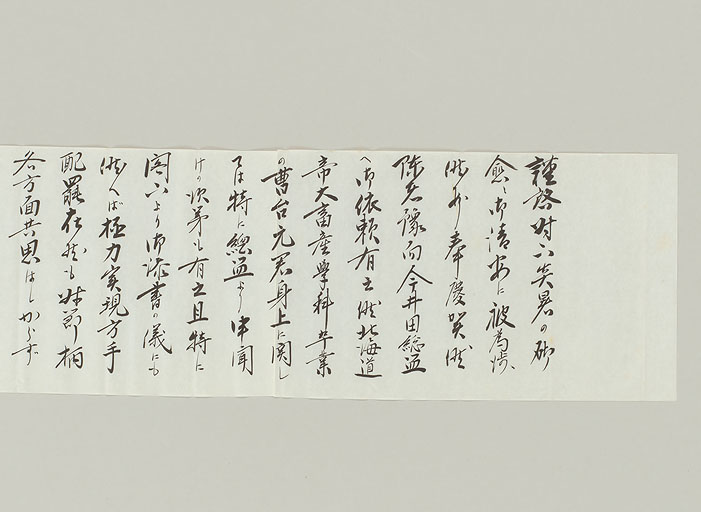 謹啓時下炎暑の砌
愈々御清安に被為渉、
候段奉慶賀候
陳者豫而今井田総監
へ御依頼有之候北海道
帝大畜産学科卒業
の曹台元君身上に関し
ては特に総監より申聞
けの次第も有之且特に
閣下より御添書の儀にも
候へば極力実現方手
配罷在候も時節柄
各方面共思はしからず